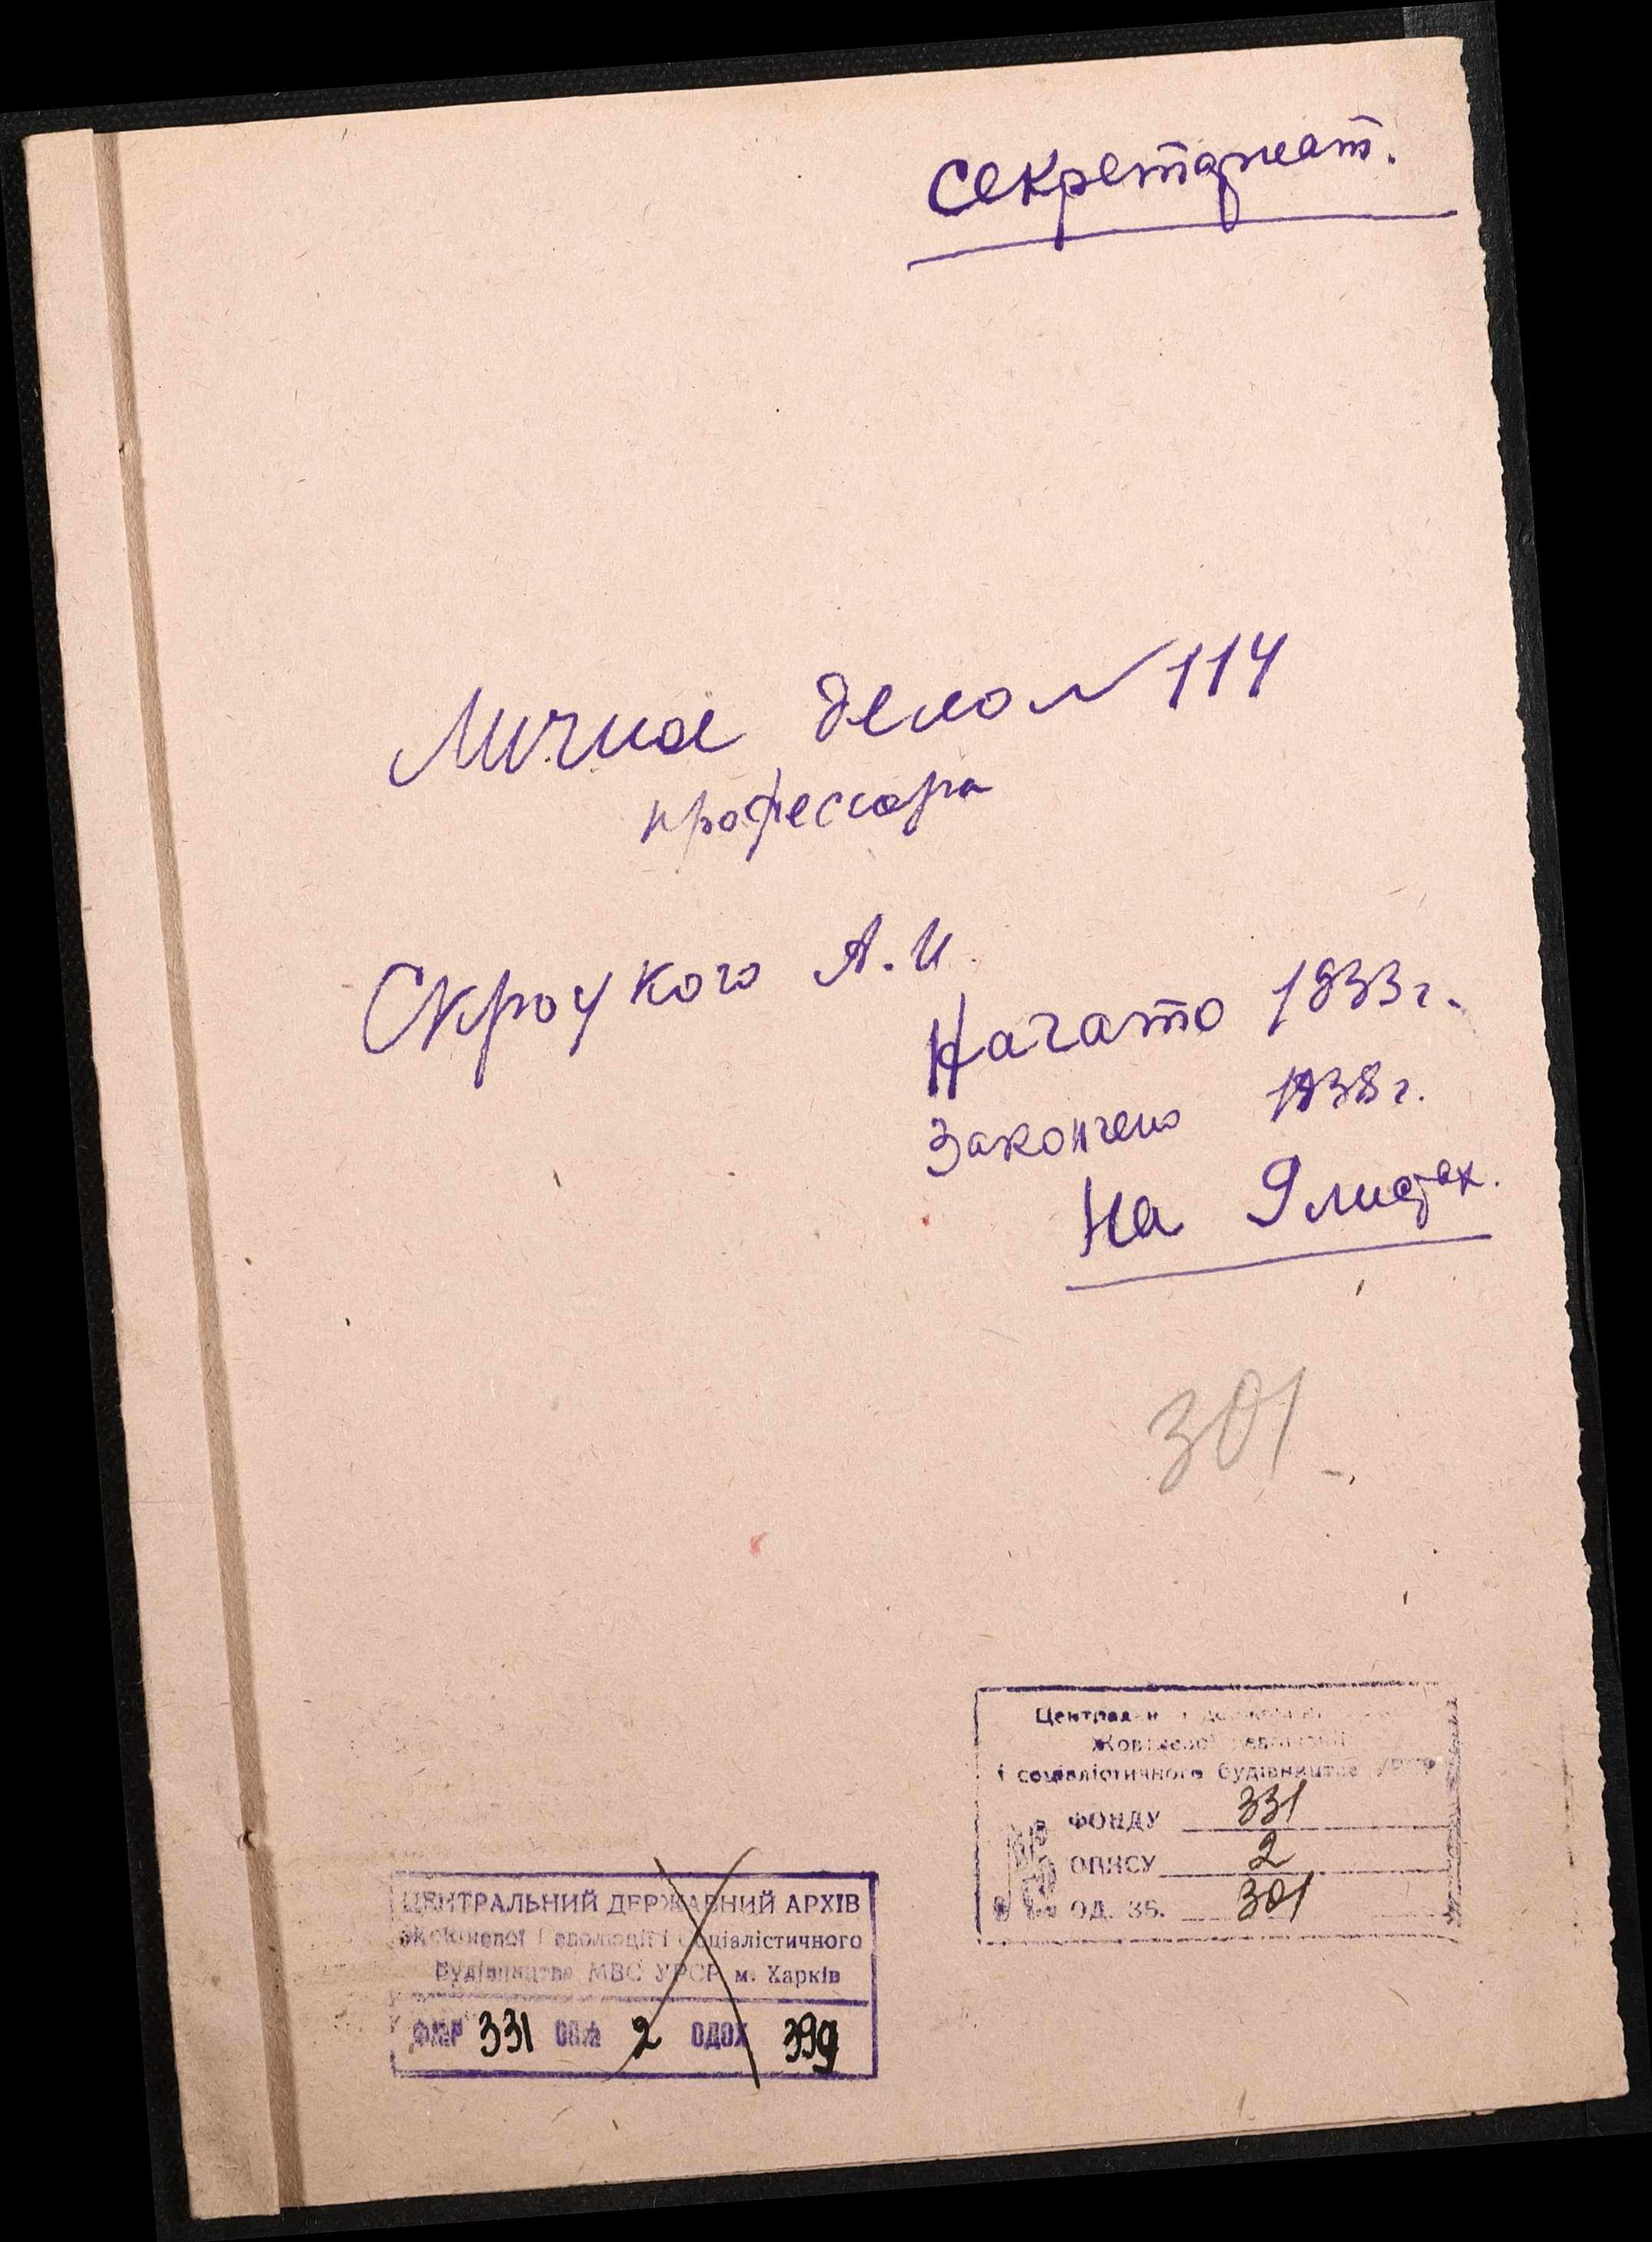 Секретариат.
Личное дело № 114
профессора
Скроцкого А.И.
Начато 1933 г.
Закончено 1938 г.
На 9 листах.
301
Центральн
Жовтневої революції
і соціалістичного будівництва УРСР
№ ФОНДУ 331
ОПИСУ 2
ОД. ЗБ. 301
ЦЕНТРАЛЬНИЙ ДЕРЖАВНИЙ АРХІВ
Жовтневої Революції і Соціалістичного
Будівництва МВС УРСР м. Харків
331 2 ОДОХ 399